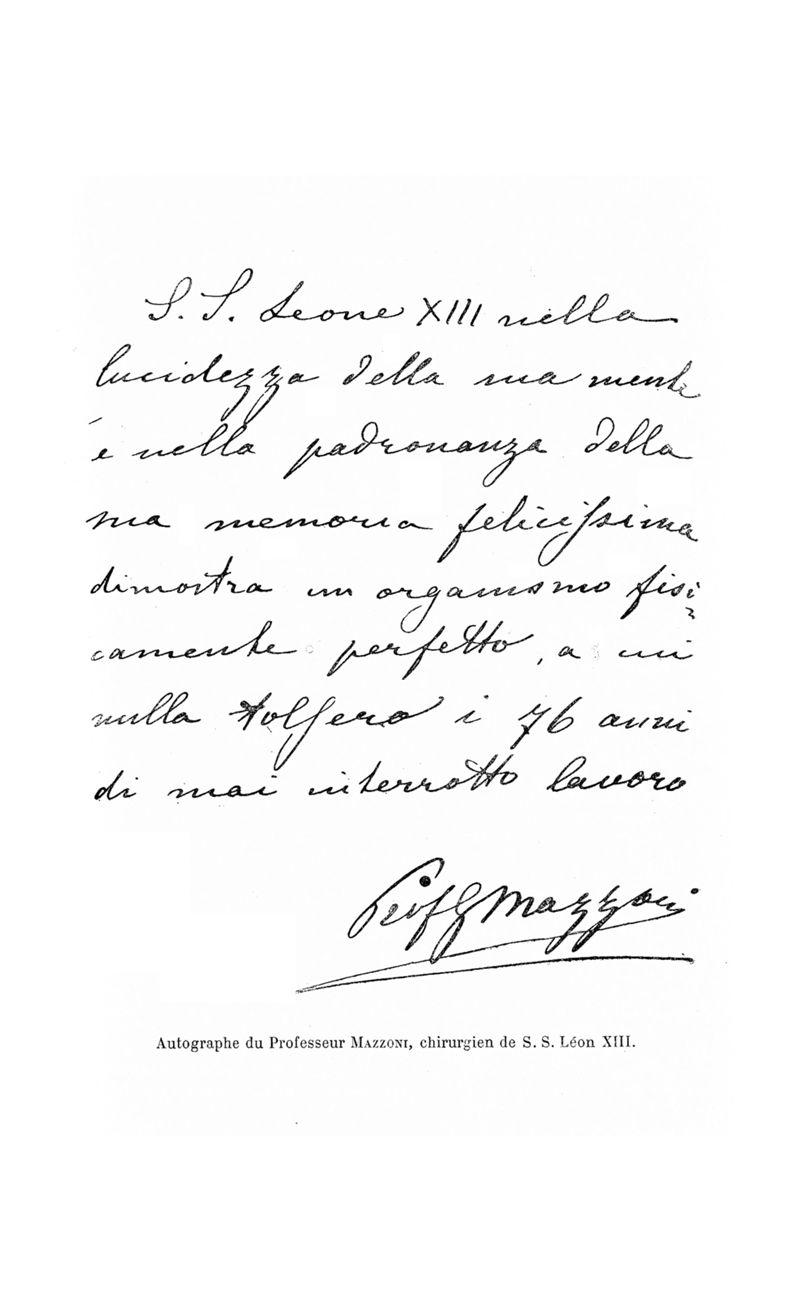 S. S. Leone XIII nella
lucidezza della sua mente
e nella padronanza della
sua memoria felicissima
dimostra un organismo fisi
camente perfetto, a cui
nulla tolsero i 76 anni
di mai interrotto lavoro
Prof G Mazzoni
Autographe du Professeur MAZZONI, chirurgien de S. S. Léon XIII.